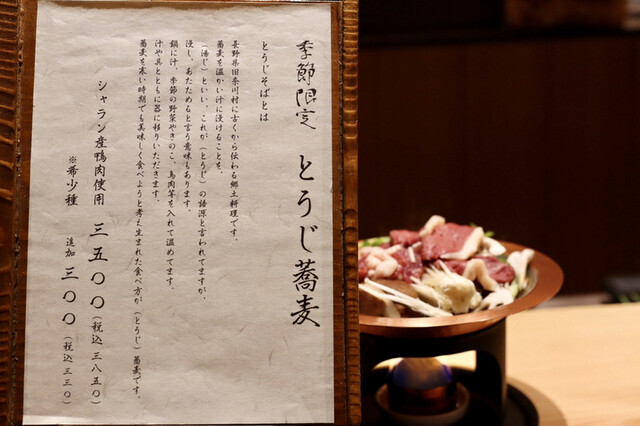 季節限定 とうじ蕎麦
とうじそばとは
長野県旧奈川村に古くから伝わる郷土料理です。
蕎麦を温かい汁に浸けることを、
(湯じ)といい、これが(とうじ)の語源と言われてますが、
浸し、あたためると言う意味もあります。
鍋に汁、季節の野菜やきのこ、鳥肉等を入れて温めてます。
汁や具とともに器に移りいただきます。
蕎麦を寒い時期でも美味しく食べようと考え生まれた食べ方が(とうじ)蕎麦です。
シャラン産鴨肉使用 三五〇〇(税込 三八五〇)
※希少種 追加 三〇〇(税込 三三〇)